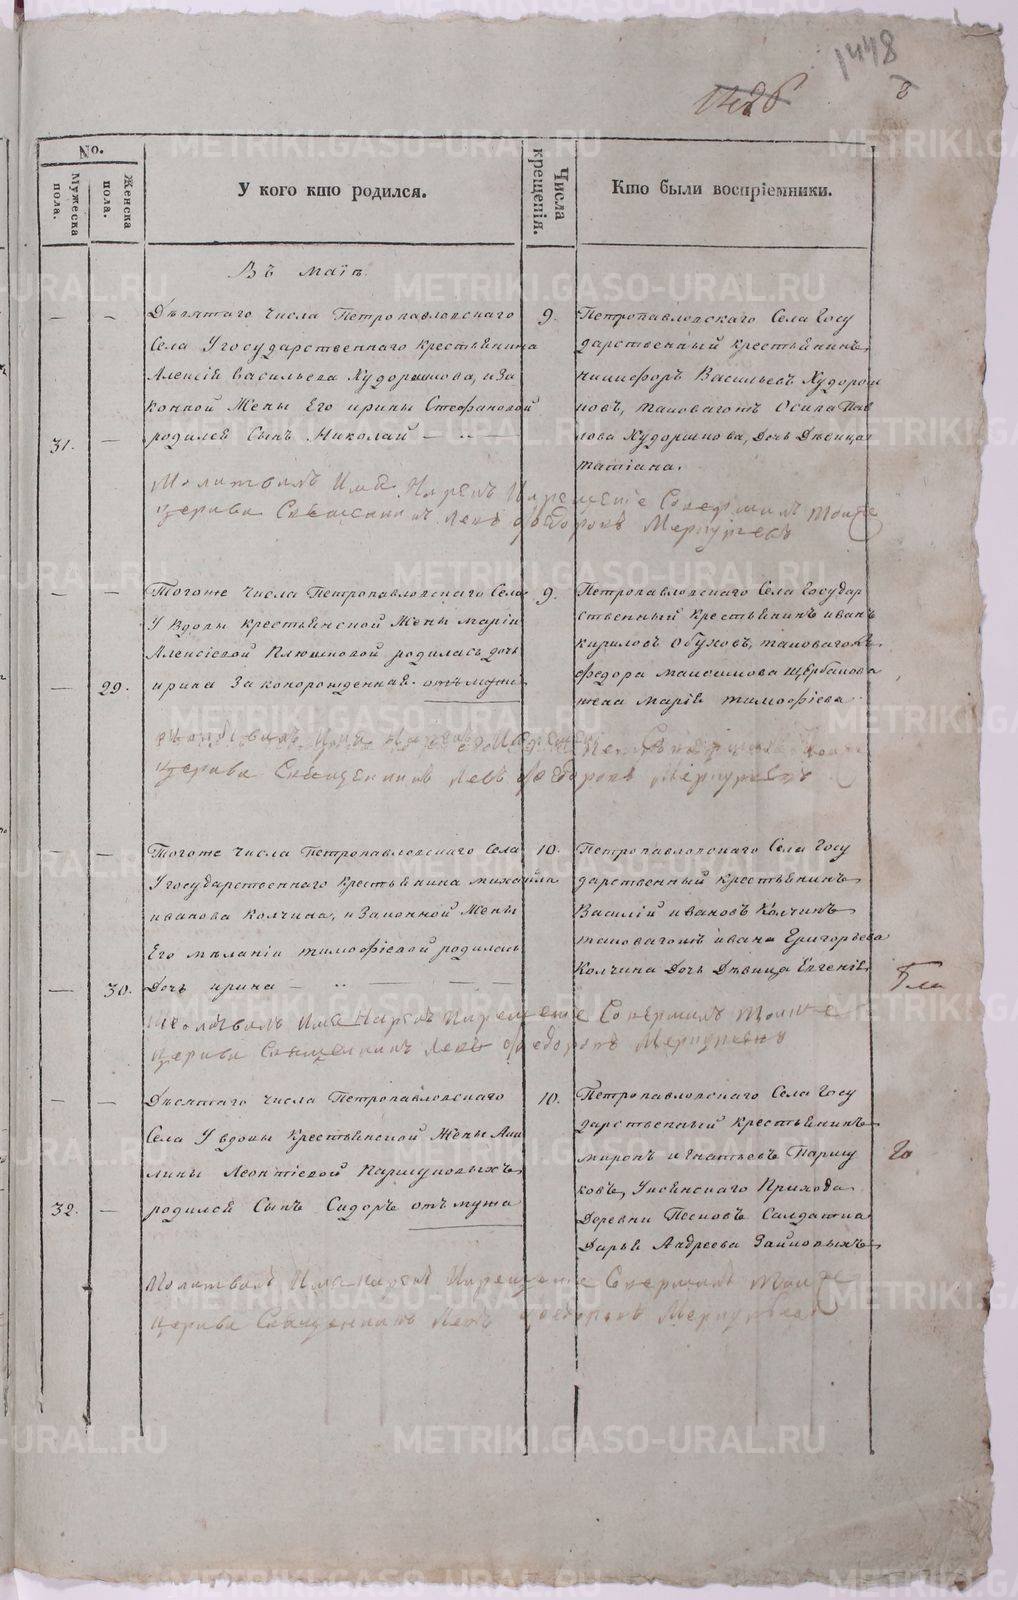 1448
8
No.
Мужеска пола.
Женска пола.
У кого кто родился.
Числа крещенія.
Кто были воспріемники.
Въ Маіѣ.
Девятаго числа Петропавловскаго
Села У государственнаго крестьянина
Алексія Васильева Худорошкова, и За
конной Жены Его ирины Стефановой
31. — родился Сынъ Николай — „ —
9.
Петропавловскаго Села Госу
дарственный крестьянинъ
никифоръ Васильевъ Худорош
ковъ, таковагожъ Осипа Пав
лова Худорошкова, Дочь Дѣвица
татіана.
Молитвилъ Имя Нарекъ И Крещение Совершилъ Тоиже
Церкви Священникъ Левъ Федоровъ Меркурьевъ
Тогоже числа Петропавловскаго Села
У вдовы крестьянской Жены маріи
Алексіевой Плюсниной родилась дочь
— 29. ирина Законорожденная. отъ мужа
9.
Петропавловскаго Села Государ
ственный крестьянинъ иванъ
кириловъ Обуховъ, таковагожъ
федора максимова Щербакова
жена марія тимофіева
Церкви Священникъ Левъ Федоровъ Меркурьевъ
Тогоже числа Петропавловскаго Села
У государственнаго крестьянина михаила
иванова Колчина, и Законной Жены
Его меланіи тимофіевой родилась
— 30. Дочь ирина — „ — — —
10.
Петропавловскаго Села Госу
дарственный крестьянинъ
Василій ивановъ Колчинъ
таковагожъ ивана Григорьева
Колчина Дочь Дѣвица Евгенія
Молитвилъ Имя Нарекъ И Крещение Совершилъ Тоиже
Церкви Священникъ Левъ Федоровъ Меркурьевъ
Десятаго числа Петропавловскаго
Села У вдовы крестьянской Жены Аки
лины Леонтіевой Паршуковыхъ
32. — родился Сынъ Сидоръ отъ мужа
10.
Петропавловскаго Села Госу
дарственный крестьянинъ
миронъ игнатьевъ Паршу
ковъ, Прихода
Деревни Песковъ Салдатка
Дарья Андреева Зайковыхъ
Молитвилъ Имя Нарекъ И Крещение Совершилъ Тоиже
Церкви Священникъ Левъ Федоровъ Меркурьевъ
METRIKI.GASO-URAL.RU